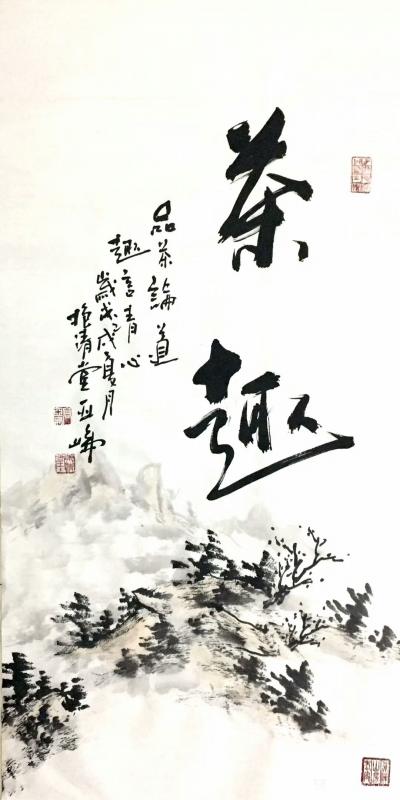 茶趣
品茶論道
趣言清心
歲戊戌夏月
挹清堂亚峰